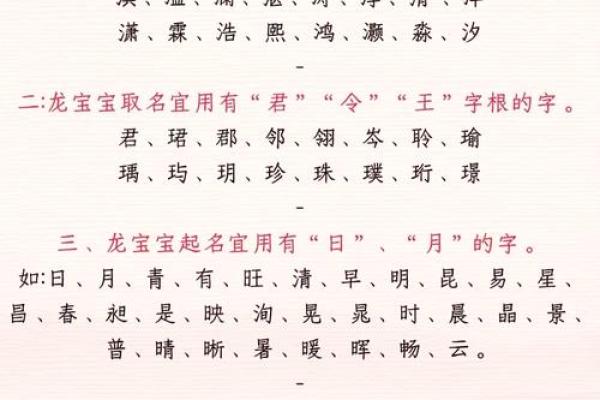 潇、霖、浩、熙、鸿、灏、淼、汐
-
二:龙宝宝取名宜用有“君”“令”“王”字根的字。
君、珺、郡、邻、翎、岑、聆、瑜
瑀、玙、玥、珍、珠、璞、珩、璟
-
三、龙宝宝起名宜用有“日”、“月”的字。
如:日、月、青、有、旺、清、早、明、昆、易、星、
昌、春、昶、是、映、洵、晃、晁、时、晨、晶、景、
普、晴、晰、暑、暖、晖、畅、云。
-